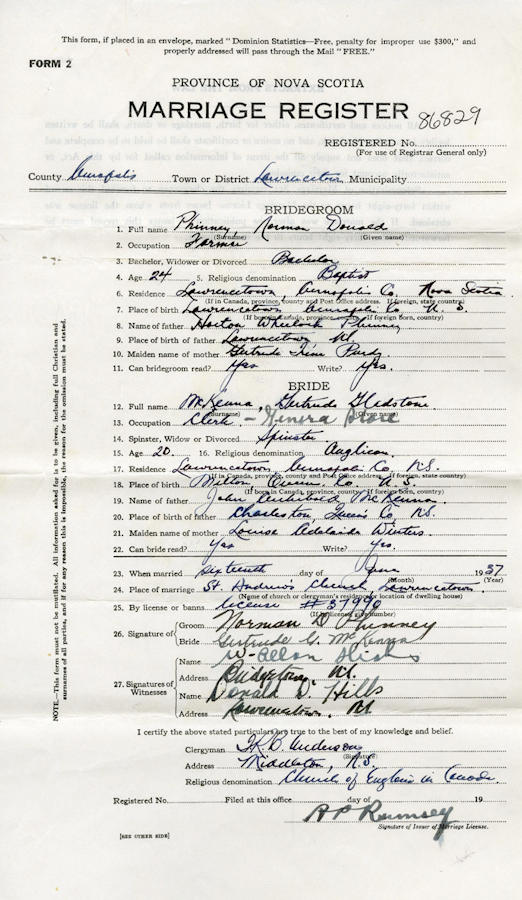 This form, if placed in an envelope, marked "Dominion Statistics—Free, penalty for improper use $300," and
properly addressed will pass through the Mail "FREE."
FORM 2
PROVINCE OF NOVA SCOTIA
MARRIAGE REGISTER 86829
REGISTERED No.
(For use of Registrar General only)
County Annapolis Town or District Lawrencetown Municipality
BRIDEGROOM
1. Full name Phinney, Norman Donald
(Surname) (Given name)
2. Occupation Farmer
3. Bachelor, Widower or Divorced Bachelor
4. Age 24 5. Religious denomination Baptist
6. Residence Lawrencetown, Annapolis Co. Nova Scotia
(If in Canada, province, county and Post Office address. If foreign, state country)
7. Place of birth Lawrencetown Annapolis Co. N. S.
(If born in Canada, province, If foreign born, country)
8. Name of father Horton Wheelock Phinney
9. Place of father Lawrencetown, NS.
10. Maiden name of mother Gertrude Irene Purdy
11. Can bridegroom read? Yes Write? Yes.
BRIDE
12. Full name McKenna, Gertrude Gladstone
(Surname) (Given name)
13. Occupation Clerk – General Store
14. Spinster, Widow or Divorced Spinster
15. Age 20. 16. Religious denomination Anglican.
17. Residence Lawrencetown, Annapolis Co. N.S.
(If in Canada, province, county and Post Office address. If foreign, state country)
18. Place of birth Milton, Queens Co. N. S.
(If born in Canada, province, If foreign born, country)
19. Name of father John Archibald McKenna
20. Place of birth of father Charleston, Queens Co. N.S.
21. Maiden name of mother Louise Adelaide Winters
22. Can bride read? Yes Write? Yes.
23. When married Sixteenth day of June 1937
(Month) (Year)
24. Place of marriage St. Andrew's Church Lawrencetown.
(Name of church or clergyman's residence or location of dwelling house)
25. By license or banns license #37990
(If license, give number)
26. Signature of
Groom Norman D. Phinney
Bride Gertrude G. McKenna
27. Signatures of Witnesses
Name W. Allan
Address Bridgetown, NS.
Name Donald D. Hills
Address Lawrencetown, NS
I certify the above stated particulars are true to the best of my knowledge and belief.
Clergyman Anderson
(Signature)
Address Middleton, N.S.
Religious denomination Church of England in Canada.
Registered No. Filed at this office day of 19
Rumsey
Signature of Issuer of Marriage License.
[SEE OTHER SIDE]
NOTE.—This form must not be mutilated. All information asked for is to be given, including full Christian and
surnames of all parties, and if for any reason this is impossible, the reason for the omission must be stated.